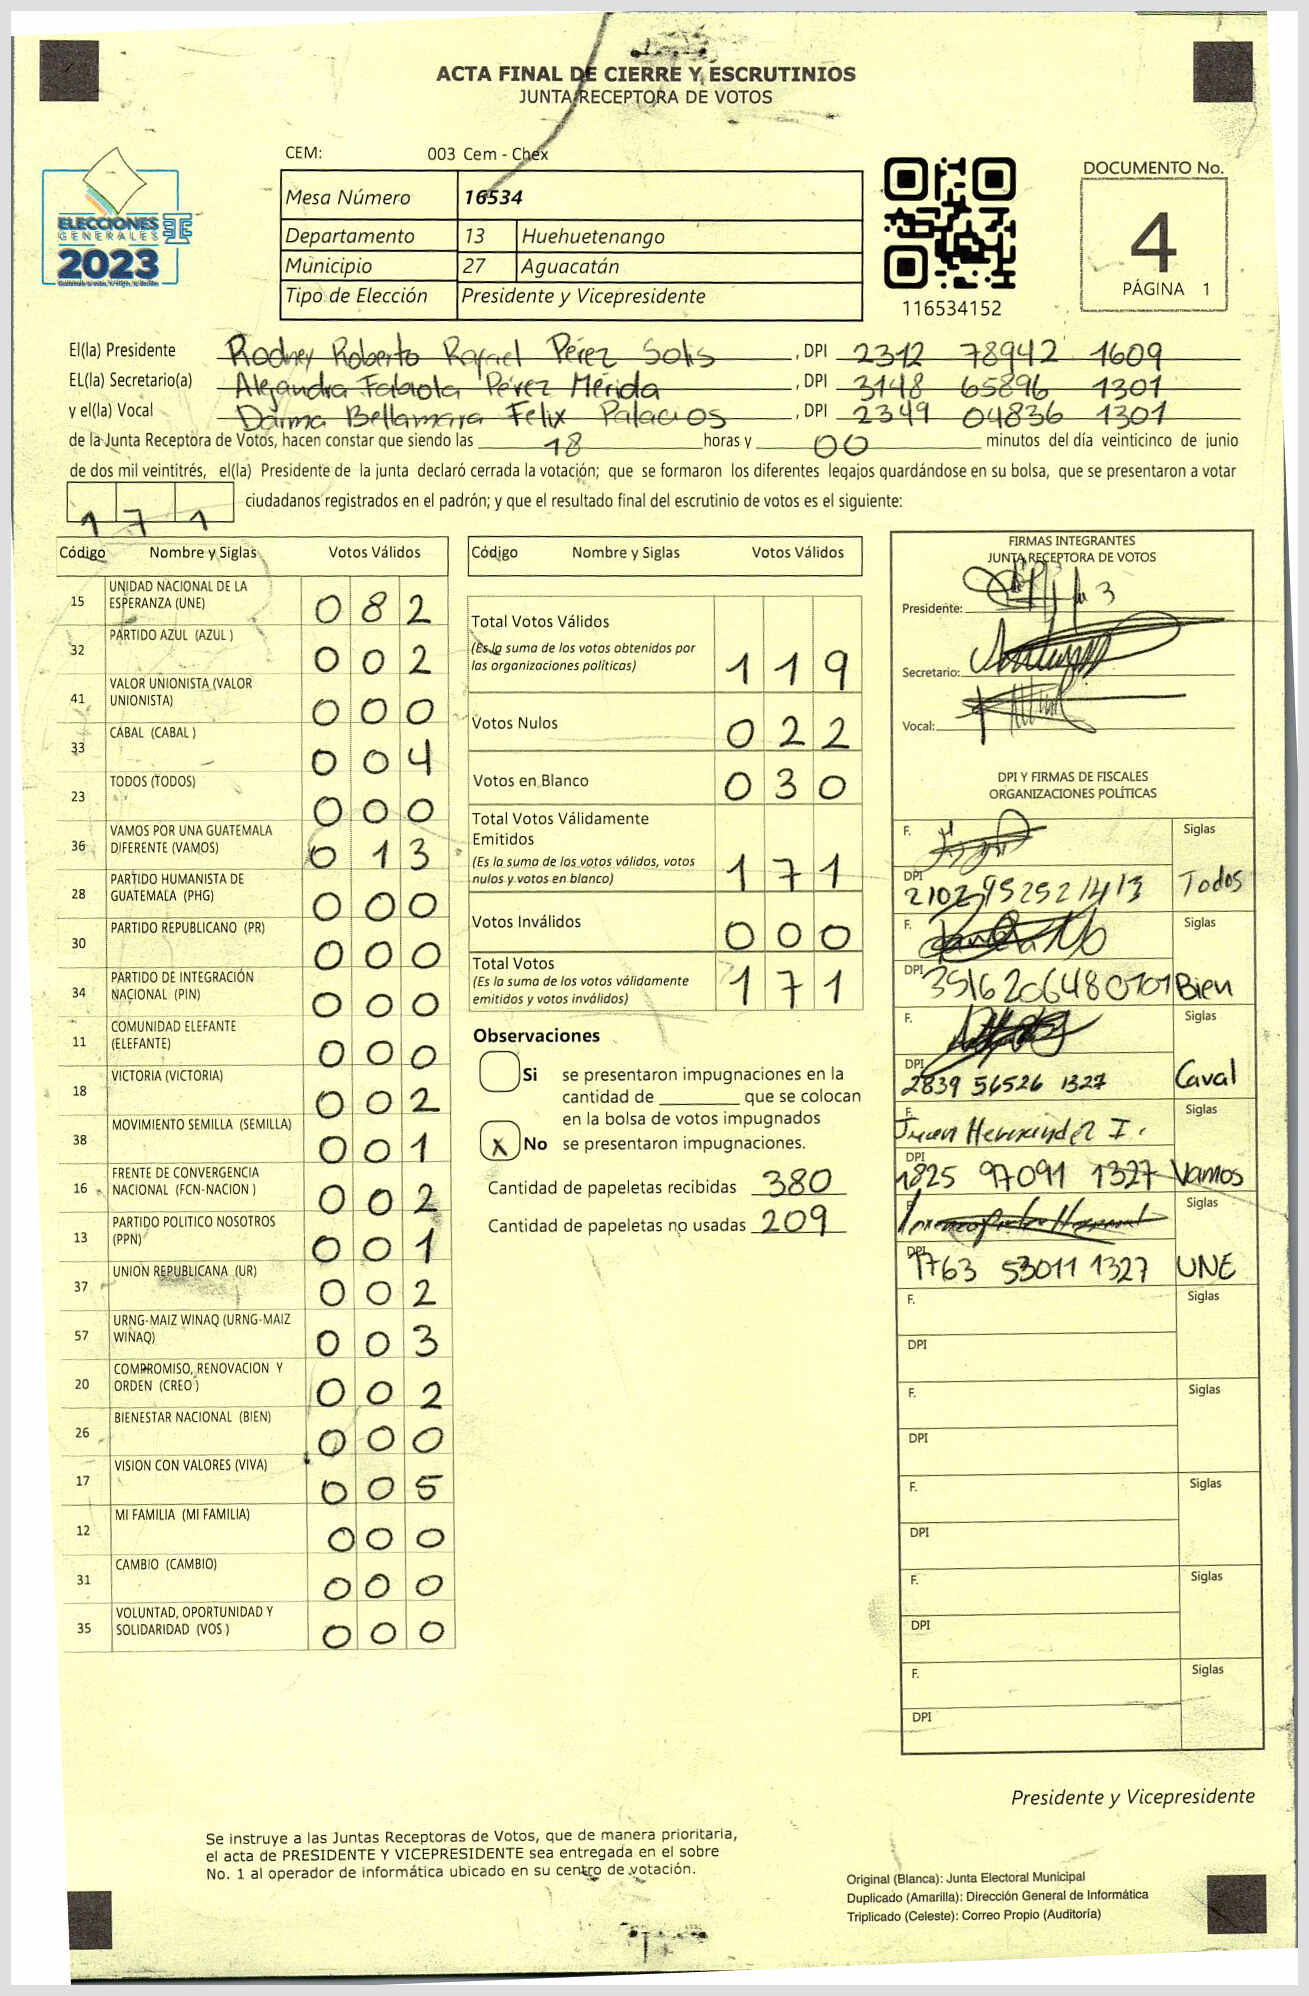 ACTA FINAL DE CIERRE Y ESCRUTINIOS
JUNTA RECEPTORA DE VOTOS
CEM: 003 Cem - Chex
ELECCIONES
GENERALES
2023
Mesa Número 16534
Departamento 13 Huehuetenango
Municipio 27 Aguacatán
Tipo de Elección Presidente y Vicepresidente
116534152
DOCUMENTO No.
4
PÁGINA 1
El(la) Presidente Rodney Roberto Rafael Pérez Solis, DPI 2312 78942 1609
EL(la) Secretario(a) Alejandra Fabiola Pérez Mérida, DPI 3148 65896 1301
y el(la) Vocal Darma Bellamara Felix Palacios, DPI 2349 04836 1301
de la Junta Receptora de Votos, hacen constar que siendo las 18 horas y 00 minutos del día veinticinco de junio
de dos mil veintitrés, el(la) Presidente de la junta declaró cerrada la votación; que se formaron los diferentes legajos guardándose en su bolsa, que se presentaron a votar
171 ciudadanos registrados en el padrón; y que el resultado final del escrutinio de votos es el siguiente:
Código Nombre y Siglas Votos Válidos
15 UNIDAD NACIONAL DE LA ESPERANZA (UNE) 082
32 PARTIDO AZUL (AZUL ) 002
41 VALOR UNIONISTA (VALOR UNIONISTA) 000
33 CABAL (CABAL ) 004
23 TODOS (TODOS) 000
36 VAMOS POR UNA GUATEMALA DIFERENTE (VAMOS) 013
28 PARTIDO HUMANISTA DE GUATEMALA (PHG) 000
30 PARTIDO REPUBLICANO (PR) 000
34 PARTIDO DE INTEGRACIÓN NACIONAL (PIN) 000
11 COMUNIDAD ELEFANTE (ELEFANTE) 000
18 VICTORIA (VICTORIA) 002
38 MOVIMIENTO SEMILLA (SEMILLA) 001
16 FRENTE DE CONVERGENCIA NACIONAL (FCN-NACION ) 002
13 PARTIDO POLITICO NOSOTROS (PPN) 001
37 UNION REPUBLICANA (UR) 002
57 URNG-MAIZ WINAQ (URNG-MAIZ WINAQ) 003
20 COMPROMISO, RENOVACION Y ORDEN (CREO ) 002
26 BIENESTAR NACIONAL (BIEN) 000
17 VISION CON VALORES (VIVA) 005
12 MI FAMILIA (MI FAMILIA) 000
31 CAMBIO (CAMBIO) 000
35 VOLUNTAD, OPORTUNIDAD Y SOLIDARIDAD (VOS ) 000
Código Nombre y Siglas Votos Válidos
Total Votos Válidos
(Es la suma de los votos obtenidos por
las organizaciones políticas) 119
Votos Nulos 022
Votos en Blanco 030
Total Votos Válidamente
Emitidos
(Es la suma de los votos válidos, votos
nulos y votos en blanco) 171
Votos Inválidos 000
Total Votos
(Es la suma de los votos válidamente
emitidos y votos inválidos) 171
Observaciones
Si se presentaron impugnaciones en la
cantidad de ________ que se colocan
en la bolsa de votos impugnados
X No se presentaron impugnaciones.
Cantidad de papeletas recibidas 380
Cantidad de papeletas no usadas 209
FIRMAS INTEGRANTES
JUNTA RECEPTORA DE VOTOS
Presidente:
Secretario:
Vocal:
DPI Y FIRMAS DE FISCALES
ORGANIZACIONES POLÍTICAS
F. Siglas
DPI Todos
F. Siglas
DPI 3516206480101 Bien
F. Siglas
DPI 2839 56526 1327 Caval
F. Juan Hernandez I. Siglas
DPI 1825 97091 1327 Vamos
F. Siglas
DPI 1763 53011 1327 UNE
F. Siglas
DPI
F. Siglas
DPI
F. Siglas
DPI
F. Siglas
DPI
F. Siglas
DPI
Presidente y Vicepresidente
Se instruye a las Juntas Receptoras de Votos, que de manera prioritaria,
el acta de PRESIDENTE Y VICEPRESIDENTE sea entregada en el sobre
No. 1 al operador de informática ubicado en su centro de votación.
Original (Blanca): Junta Electoral Municipal
Duplicado (Amarilla): Dirección General de Informática
Triplicado (Celeste): Correo Propio (Auditoría)